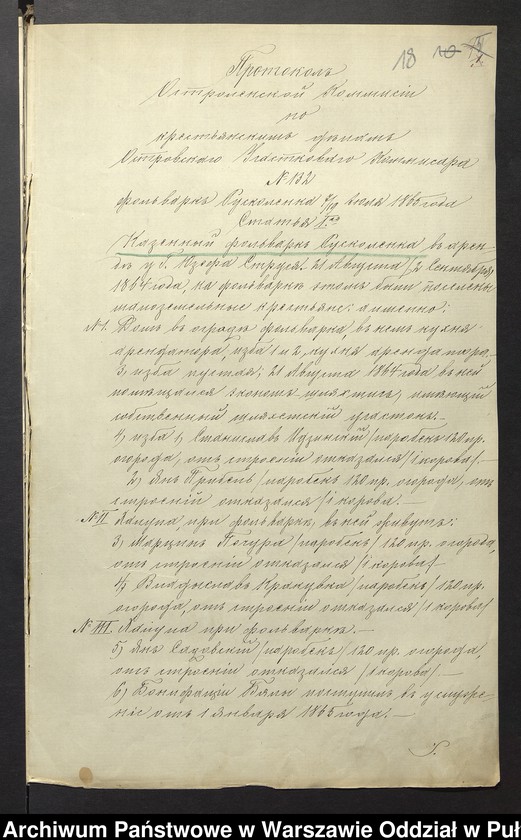 18 10
Протоколъ
Остроленской Коммисіи
по
крестьянскимъ дѣламъ
Островскаго Участковаго Коммисара
№ 132
фольваркъ Русколенка 7/19 Іюля 1865 года
Статья I.
Казенный фольваркъ Русколенка въ арен-
дѣ у г. Юзефа Струся. 21 Августа / 2 Сентября
1864 года, на фольваркѣ этомъ были поселены
малоземельные крестьяне: а именно:
№ I. Домъ въ оградѣ фольварка, въ немъ кухня
арендатора, изба 1 и 2, кухня арендатора.
3, изба пустая; 21 Августа 1864 года въ ней
помѣщался экономъ шляхтичъ, имѣющій
собственный шляхетскій участокъ.—
1) изба 1, Станиславъ /паробекъ 120 пр.
огорода, отъ строеній отказался/ 1 корова/.—
2) Янъ /паробекъ 120 пр. огорода, отъ
строеній отказался /1 корова.—
№ II Халупа при фольваркѣ, въ ней живутъ:
3) Марцинъ /паробекъ/ 120 пр. огорода,
отъ строеній отказался /1 корова/
4) Владиславъ Краковка /паробекъ/ 120 пр.
огорода, отъ строеній отказался /1 корова/
№ III. Халупа при фольваркѣ.—
5) Янъ Садовскій /паробекъ/ 120 пр. огорода,
отъ строеній отказался /1 корова/.—
6) Бонифаций поступилъ въ услуже-
ніе отъ 1 Января 1865 года.—
Archiwum Państwowe w Warszawie Oddział w Puł